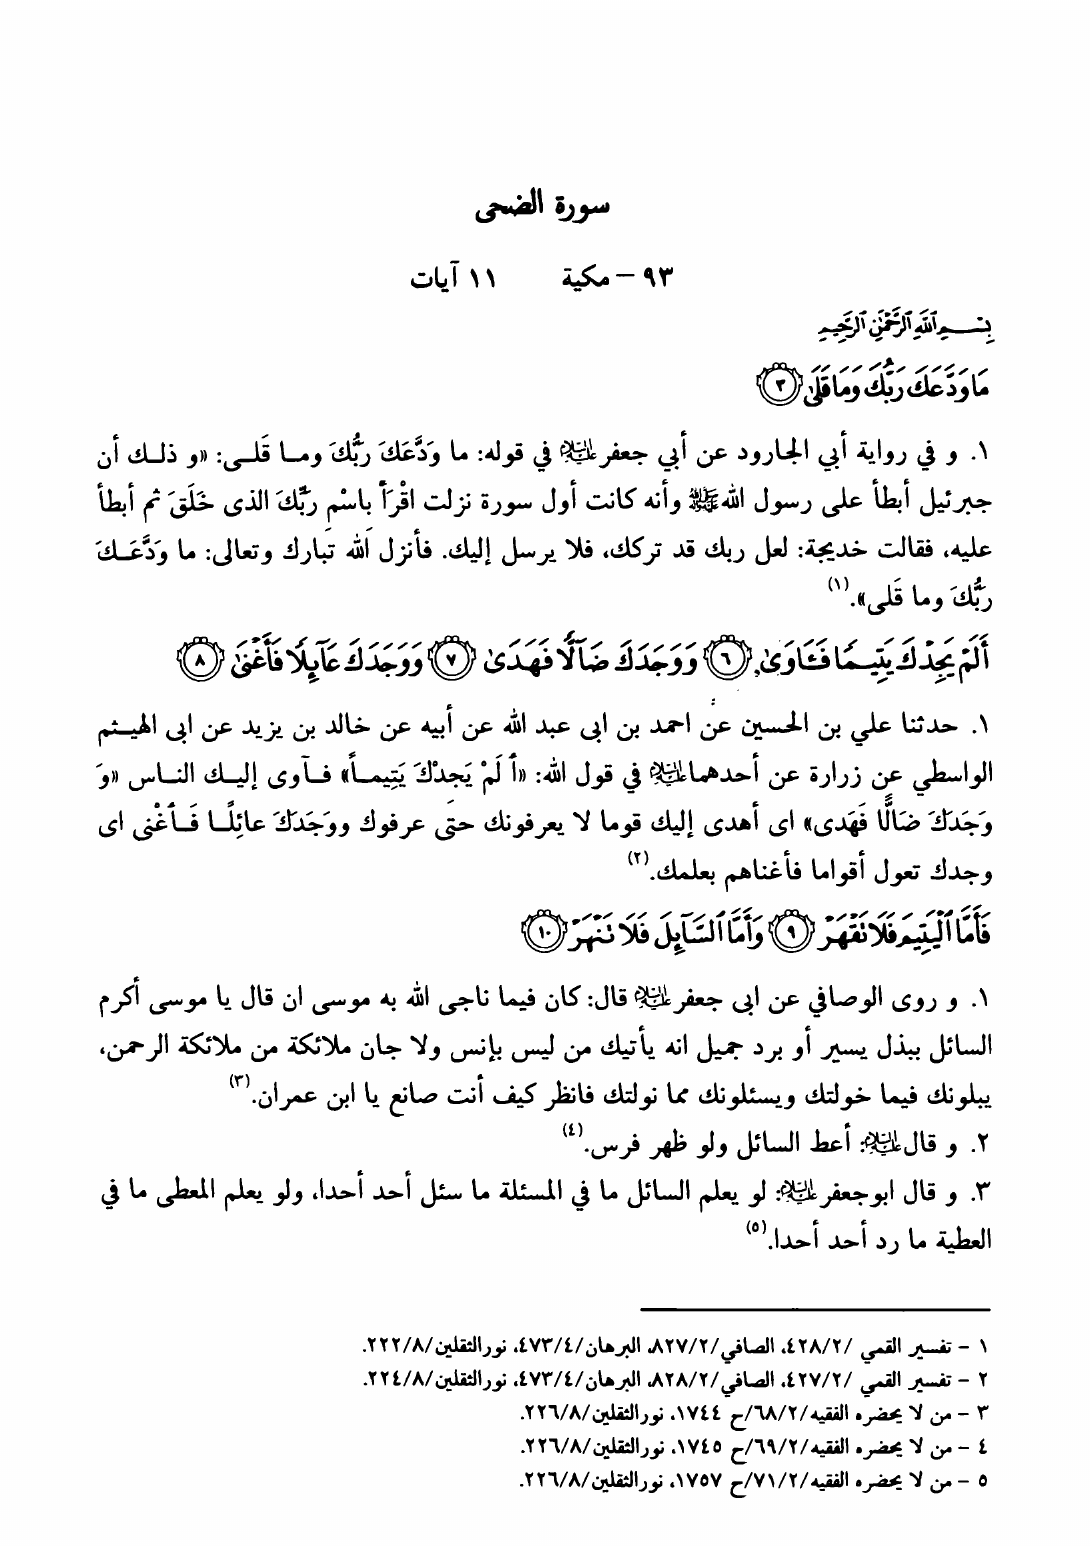 سورة الضحى
٩٣ – مكية ١١ آيات
بِسْمِ ٱللَّهِ ٱلرَّحْمَٰنِ ٱلرَّحِيمِ
مَا وَدَّعَكَ رَبُّكَ وَمَا قَلَىٰ ٣
١. و في رواية أبي الجارود عن أبي جعفر عليه السلام في قوله: ما وَدَّعَكَ رَبُّكَ ومـا قَلـى: «و ذلـك أن
جبرئيل أبطأ على رسول الله ﷺ وأنه كانت أول سورة نزلت اقْرَأْ بِاسْمِ رَبِّكَ الذى خَلَقَ ثم أبطأ
عليه، فقالت خديجة: لعل ربك قد تركك، فلا يرسل إليك. فأنزل الله تبارك وتعالى: ما وَدَّعَـكَ
رَبُّكَ وما قَلى».(١)
أَلَمْ يَجِدْكَ يَتِيمًا فَـَٔاوَىٰ ٦ وَوَجَدَكَ ضَآلًّا فَهَدَىٰ ٧ وَوَجَدَكَ عَآئِلًا فَأَغْنَىٰ ٨
١. حدثنا علي بن الحسين عن احمد بن ابى عبد الله عن أبيه عن خالد بن يزيد عن ابى الهيـثم
الواسطي عن زرارة عن أحدهما عليه السلام في قول الله: «أ لَمْ يَجِدْكَ يَتِيمـاً» فـآوى إليـك النـاس «وَ
وَجَدَكَ ضَالًّا فَهَدى» اى أهدى إليك قوما لا يعرفونك حتى عرفوك ووَجَدَكَ عائِلًـا فَـأَغْنى اى
وجدك تعول أقواما فأغناهم بعلمك.(٢)
فَأَمَّا ٱلْيَتِيمَ فَلَا تَقْهَرْ ٩ وَأَمَّا ٱلسَّآئِلَ فَلَا تَنْهَرْ ١٠
١. و روى الوصافي عن ابى جعفر عليه السلام قال: كان فيما ناجى الله به موسى ان قال يا موسى أكرم
السائل ببذل يسير أو برد جميل انه يأتيك من ليس بإنس ولا جان ملائكة من ملائكة الرحمن،
يبلونك فيما خولتك ويسئلونك مما نولتك فانظر كيف أنت صانع يا ابن عمران.(٣)
٢. و قال عليه السلام: أعط السائل ولو ظهر فرس.(٤)
٣. و قال ابوجعفر عليه السلام: لو يعلم السائل ما في المسئلة ما سئل أحد أحدا، ولو يعلم المعطى ما في
العطية ما رد أحد أحدا.(٥)
١ – تفسير القمي /٤٢٨/٢، الصافي/٨٢٧/٢، البرهان/٤٧٣/٤، نورالثقلين/٢٢٢/٨.
٢ – تفسير القمي /٤٢٧/٢، الصافي/٨٢٨/٢، البرهان/٤٧٣/٤، نورالثقلين/٢٢٤/٨.
٣ – من لا يحضره الفقيه/٦٨/٢/ح ١٧٤٤، نورالثقلين/٢٢٦/٨.
٤ – من لا يحضره الفقيه/٦٩/٢/ح ١٧٤٥، نورالثقلين/٢٢٦/٨.
٥ – من لا يحضره الفقيه/٧١/٢/ح ١٧٥٧، نورالثقلين/٢٢٦/٨.